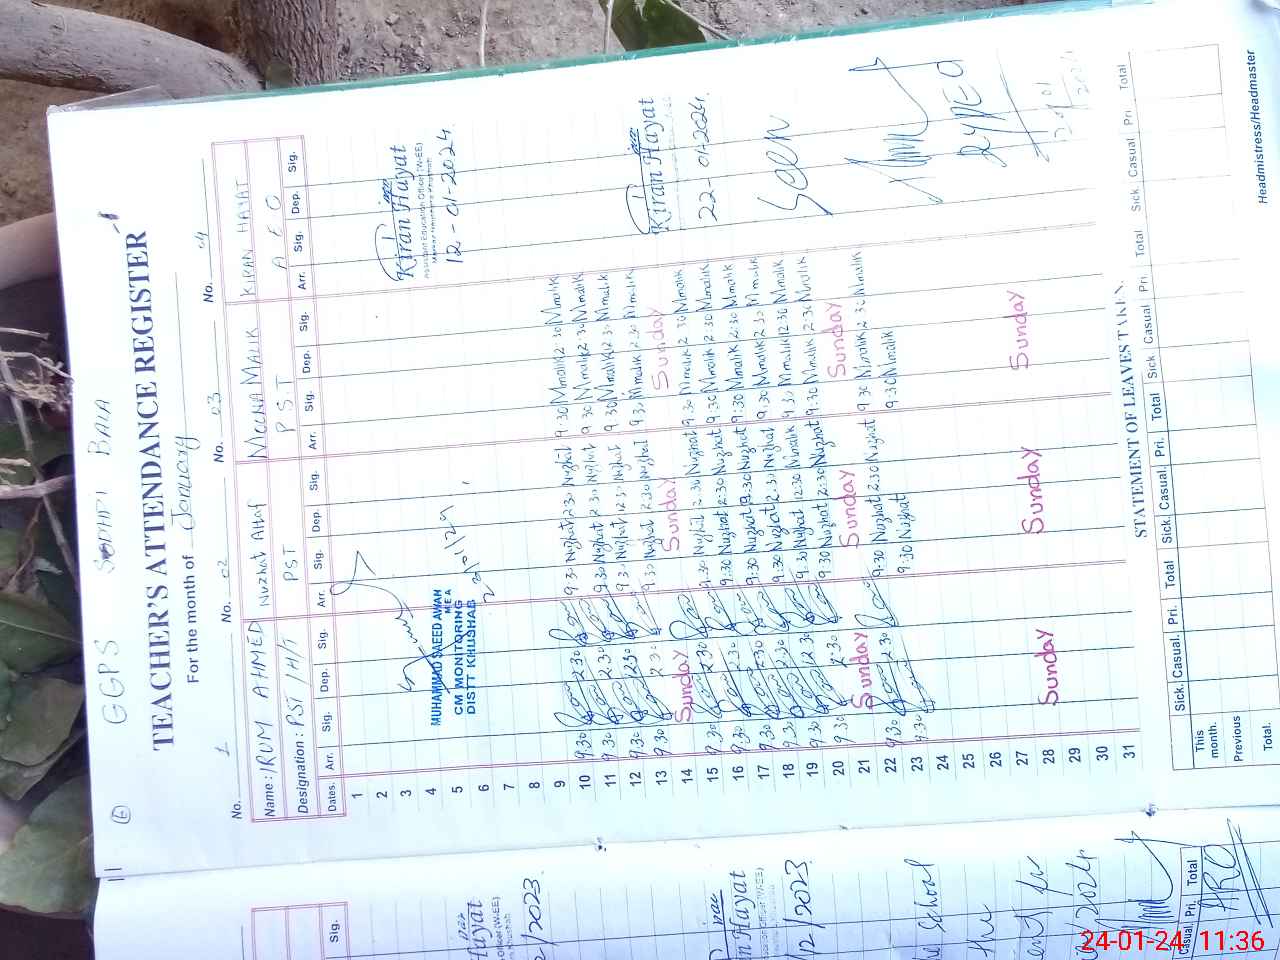 GGPS SODHI BALA
TEACHER'S ATTENDANCE REGISTER
For the month of January
No. 1 No. 02 No. 03 No. 04
Name: IRUM AHMED Nuzhat Altaf MEENA MALIK KIRAN HAYAT
Designation: PST/H/T PST P S T A E O
Dates. Arr. Sig. Dep. Sig. Arr. Sig. Dep. Sig. Arr. Sig. Dep. Sig. Arr. Sig. Dep. Sig.
1
2
3
4
5
6
7
8
9
10 9.30 2.30 9.30 Nuzhat 2.30 Nuzhat 9.30 Mmalik 2.30 Mmalik
11 9.30 2.30 9.30 Nuzhat 2.30 Nuzhat 9.30 Mmalik 2.30 Mmalik
12 9.30 12.30 9.30 Nuzhat 12.30 Nuzhat 9.30 Mmalik 12.30 Mmalik
13 9.30 2.30 9.30 Nuzhat 2.30 Nuzhat 9.30 Mmalik 2.30 Mmalik
14 Sunday Sunday Sunday
15 9.30 2.30 9.30 Nuzhat 2.30 Nuzhat 9.30 Mmalik 2.30 Mmalik
16 9.30 2.30 9:30 Nuzhat 2:30 Nuzhat 9:30 Mmalik 2:30 Mmalik
17 9.30 2.30 9:30 Nuzhat 2:30 Nuzhat 9:30 Mmalik 2:30 Mmalik
18 9.30 2.30 9:30 Nuzhat 2.30 Nuzhat 9.30 Mmalik 2.30 Mmalik
19 9.30 12.30 9.30 Nuzhat 12:30 9.30 Mmalik 12:30 Mmalik
20 9.30 2.30 9:30 Nuzhat 2:30 Nuzhat 9:30 Mmalik 2:30 Mmalik
21 Sunday Sunday Sunday
22 9.30 2.30 9:30 Nuzhat 2:30 Nuzhat 9:30 Mmalik 2:30 Mmalik
23 9.30 9:30 Nuzhat 9:30 Mmalik
24
25
26
27
28 Sunday Sunday Sunday
29
30
31
MUHAMMAD SAEED AWAN
MEA
CM MONITORING
DISTT KHUSHAB
Kiran Hayat
Assistant Education Officer (W-EE)
12-01-2024
Kiran Hayat
22-01-2024.
Seen
STATEMENT OF LEAVES TAKEN.
Sick. Casual. Pri. Total Sick. Casual. Pri. Total Sick Casual Pri. Total Sick Casual Pri Total
This month.
Previous
Total.
Headmistress/Headmaster
Sig.
Hayat
/2023.
Hayat
12/2023
School
the
Casual Pri. Total
24-01-24 11:36